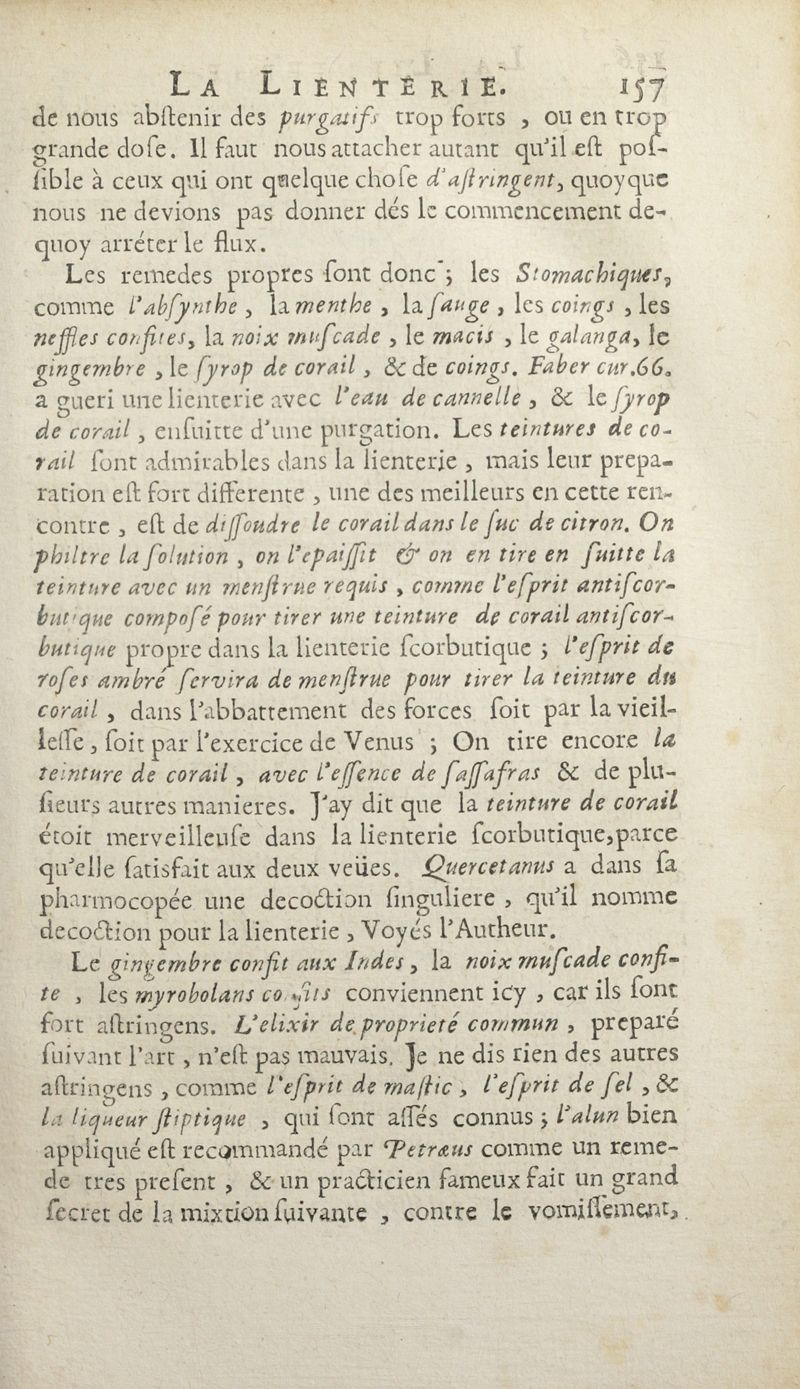 LA LIENTERIE. 157
de nous abſtenir des purgatifs trop forts , ou en trop
grande doſe. Il faut nous attacher autant qu'il eſt poſ-
ſible à ceux qui ont quelque choſe d'aſtringent, quoyque
nous ne devions pas donner dés le commencement de-
quoy arréter le flux.
Les remedes propres ſont donc ; les Stomachiques,
comme l'abſynthe , la menthe , la ſauge , les coings , les
neffles confites, la noix muſcade , le macis , le galanga, le
gingembre , le ſyrop de corail , & de coings. Faber cur.66.
a gueri une lienterie avec l'eau de cannelle , & le ſyrop
de corail , enſuitte d'une purgation. Les teintures de co-
rail ſont admirables dans la lienterie , mais leur prepa-
ration eſt fort differente , une des meilleurs en cette ren-
contre , eſt de diſſoudre le corail dans le ſuc de citron. On
philtre la ſolution , on l'epaiſſit & on en tire en ſuitte la
teinture avec un menſtrue requis , comme l'eſprit antiſcor-
butique compoſé pour tirer une teinture de corail antiſcor-
butique propre dans la lienterie ſcorbutique ; l'eſprit de
roſes ambré ſervira de menſtrue pour tirer la teinture du
corail , dans l'abbattement des forces ſoit par la vieil-
leſſe , ſoit par l'exercice de Venus ; On tire encore la
teinture de corail , avec l'eſſence de ſaſſafras & de plu-
ſieurs autres manieres. J'ay dit que la teinture de corail
étoit merveilleuſe dans la lienterie ſcorbutique,parce
qu'elle ſatisfait aux deux veües. Quercetanus a dans ſa
pharmocopée une decoction ſinguliere , qu'il nomme
decoction pour la lienterie , Voyés l'Autheur.
Le gingembre confit aux Indes , la noix muſcade confi-
te , les myrobolans confits conviennent icy , car ils ſont
fort aſtringens. L'elixir de proprieté commun , preparé
ſuivant l'art , n'eſt pas mauvais. Je ne dis rien des autres
aſtringens , comme l'eſprit de maſtic , l'eſprit de ſel , &
la liqueur ſtiptique , qui ſont aſſés connus ; l'alun bien
appliqué eſt recommandé par Petræus comme un reme-
de tres preſent , & un practicien fameux fait un grand
ſecret de la mixtion ſuivante , contre le vomiſſement,